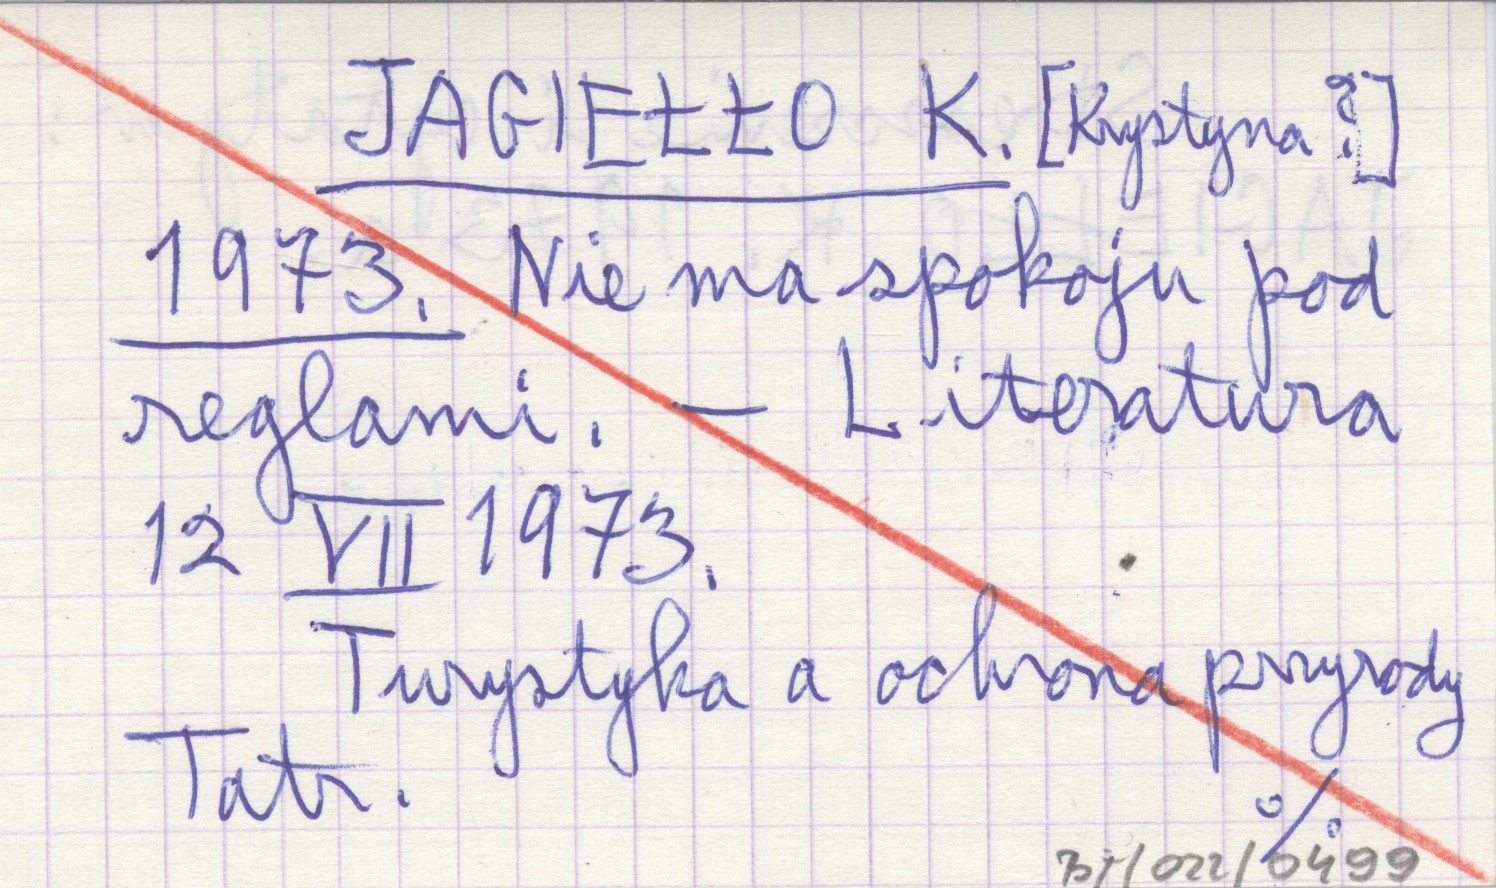 JAGIEŁŁO K. [Krystyna?]
1973. Nie ma spokoju pod
reglami. — Literatura
12 VII 1973.
Turystyka a ochrona przyrody
Tatr.
%
/022/0499